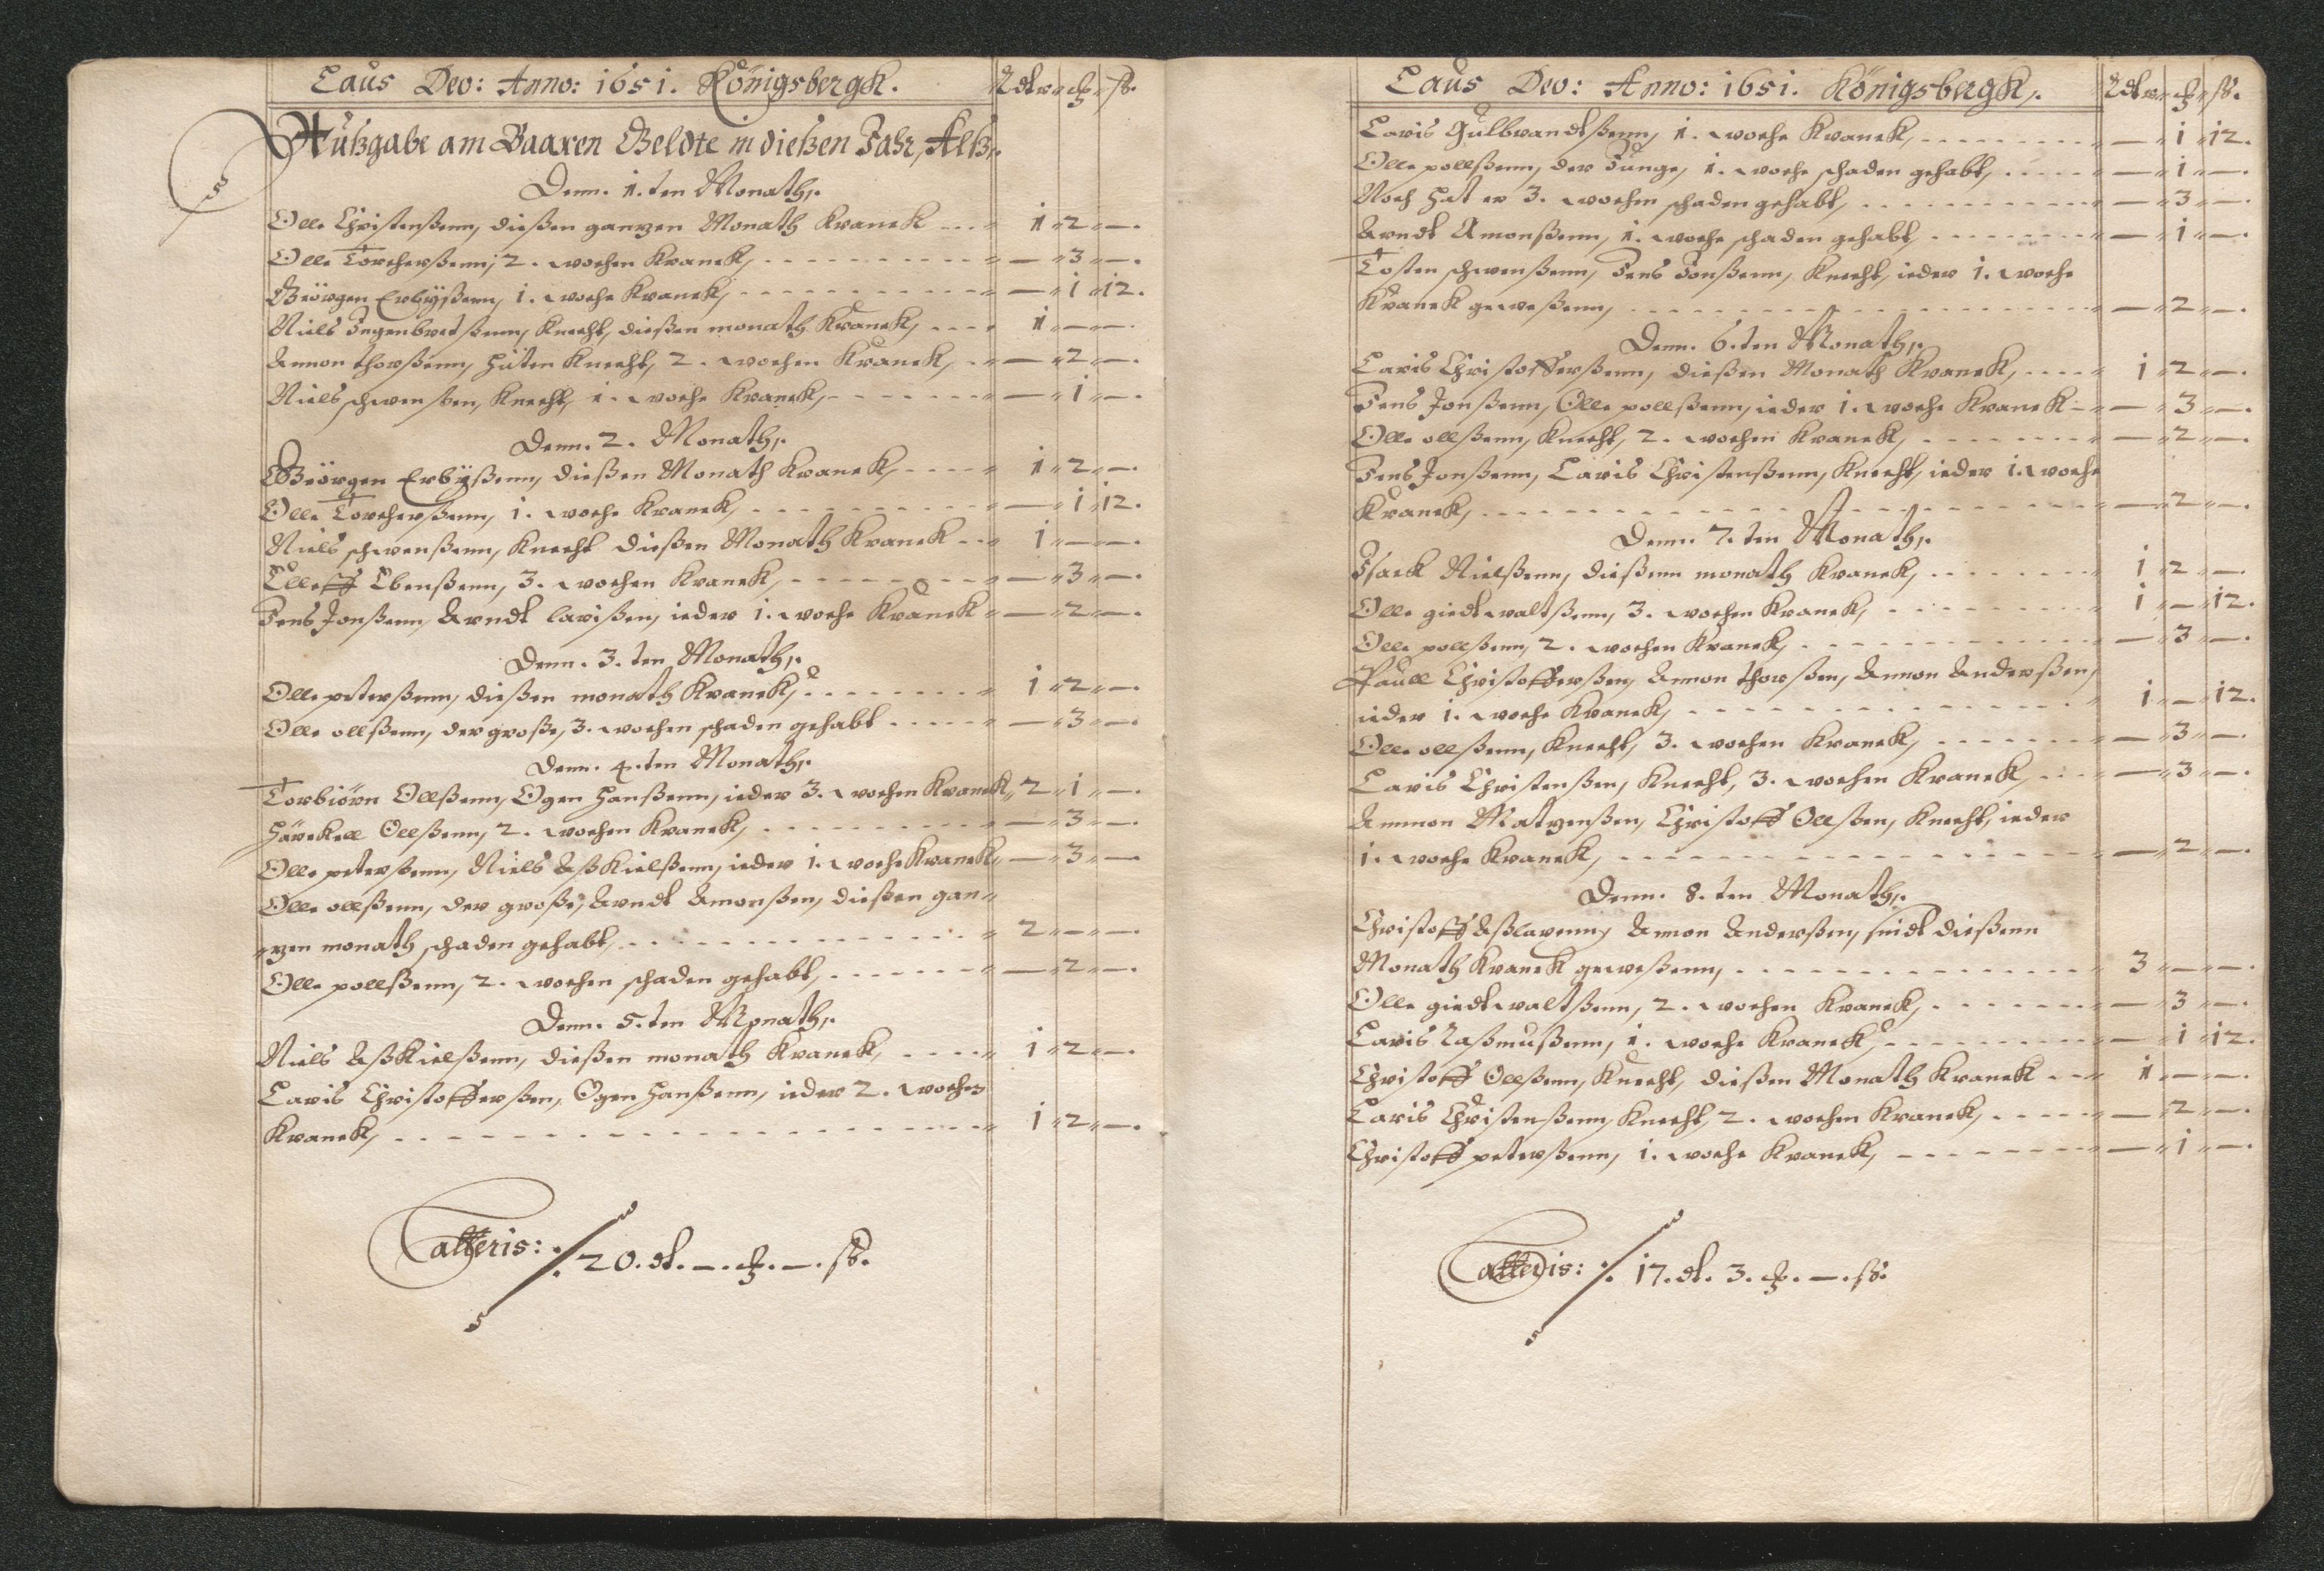 Laus Deo: Anno: 1651. Königsbergk. Rdlr ₰ ß.
Außgabe am Baaren Geldte in dießen Jahr, Alß,.
Denn. 1. ten Monath,.
Olle Christenßenn, dießen ganzen Monath Kranck - - - 1 " 2 " —.
Olle Torcherßenn, 2. wochen Kranck, - - - — " 3 " —.
Geörgen Erbÿßenn, 1. woche Kranck, - - - — " 1 " 12.
Niels Ingenbretßenn, Knecht, dießen monath Kranck, - - - 1 " — " —.
Amon thorßenn, hüten Knecht, 2. wochen Kranck, - - — " 2 " —.
Niels schwenßen, Knecht, 1. woche Kranck, - - - — " 1 " —.
Denn. 2. Monath,.
Geörgen Erbÿßenn, dießen Monath Kranck, - - - 1 " 2 " —.
Olle Torcherßenn, 1. woche Kranck, - - - — " 1 " 12.
Niels schwenßenn, Knecht dießen Monath Kranck - - 1 " — " —.
Elleff Ebenßenn, 3. wochen Kranck, - - - — " 3 " —.
Jens Jonßenn, Arndt larißen, ieder 1. woche Kranck " — " 2 " —.
Denn. 3. ten Monath,.
Olle peterßenn, dießen monath Kranck, - - - 1 " 2 " —.
Olle ollßenn, der große, 3. wochen schaden gehabt - - - — " 3 " —.
Denn. 4. ten Monath,.
Torbiörn Ollßenn, Ogen Hanßenn, ieder 3. wochen Kranck " 2 " 1 " —.
Härckell Ollßenn, 2. wochen Kranck, - - - — " 3 " —.
Olle peterßenn, Niels Aßkielßenn, ieder 1. woche Kranck, — " 3 " —.
Olle ollßenn, der große, Arndt Amonßen, dießen gan"
"zen monath schaden gehabt, - - - 2 " — " —.
Olle pollßenn, 2. wochen schaden gehabt, - - - — " 2 " —.
Denn. 5. ten Monath,.
Niels Aßkielßenn, dießen monath Kranck, - - - 1 " 2 " —.
Laris Christofferßen, Ogen Hanßenn, ieder 2. wochen
Kranck, - - - 1 " 2 " —.
Latteris: ./. 20. dl. —. ₰. —. ß.
Laus Deo: Anno: 1651. Königsbergk,. Rdlr ₰ ß.
Laris Gulbrandtßenn, 1. woche Kranck, - - - — " 1 " 12.
Olle pollßenn, der Junge, 1. woche schaden gehabt, - - - — " 1 " —.
Noch hat er 3. wochen schaden gehabt, - - - — " 3 " —.
Arndt Amonßenn, 1. woche schaden gehabt, - - - — " 1 " —.
Tosten schwenßenn, Jens Jonßenn, Knecht, ieder 1. woche
Kranck geweßenn, - - - — " 2 " —.
Denn. 6. ten Monath,.
Laris Christofferßenn, dießen Monath Kranck, - - - 1 " 2 " —.
Jens Jonßenn, Olle pollßenn, ieder 1. woche Kranck - " — " 3 " —.
Olle ollßenn, Knecht, 2. wochen Kranck, - - - — " 2 " —.
Jens Jonßenn, Laris Christenßenn, Knecht, ieder 1. woche
Kranck, - - - — " 2 " —.
Denn. 7. ten Monath,.
Isack Nielßenn, dießenn monath Kranck, - - - 1 " 2 " —.
Olle giedtwaltßenn, 3. wochen Kranck, - - - 1 " — " 12.
Olle pollßenn, 2. wochen Kranck, - - - — " 3 " —.
Paull Christofferßen, Amon thorßen, Amon Anderßen,
ieder 1. woche Kranck, - - - 1 " — " 12.
Olle ollßenn, Knecht, 3. wochen Kranck, - - - — " 3 " —.
Laris Christenßen, Knecht, 3. wochen Kranck, - - - — " 3 " —.
Ammon Matzenßen, Christoff Ollßen, Knecht, ieder
1. woche Kranck, - - - — " 2 " —.
Denn. 8. ten Monath,.
Christoff Aßlarenn, Amon Anderßen, sindt dießenn
Monath Kranck geweßenn, - - - 3 " — " —.
Olle giedtwaltßenn, 2. wochen Kranck, - - - — " 3 " —.
Laris Raßmußenn, 1. woche Kranck, - - - — " 1 " 12.
Christoff Ollßenn, Knecht, dießen Monath Kranck - - 1 " — " —.
Laris Christenßenn, Knecht, 2. wochen Kranck, - - - — " 2 " —.
Christoff peterßenn, 1. woche Kranck, - - - — " 1 " —.
Latteris: ./. 17. dl. 3. ₰. —. ß.